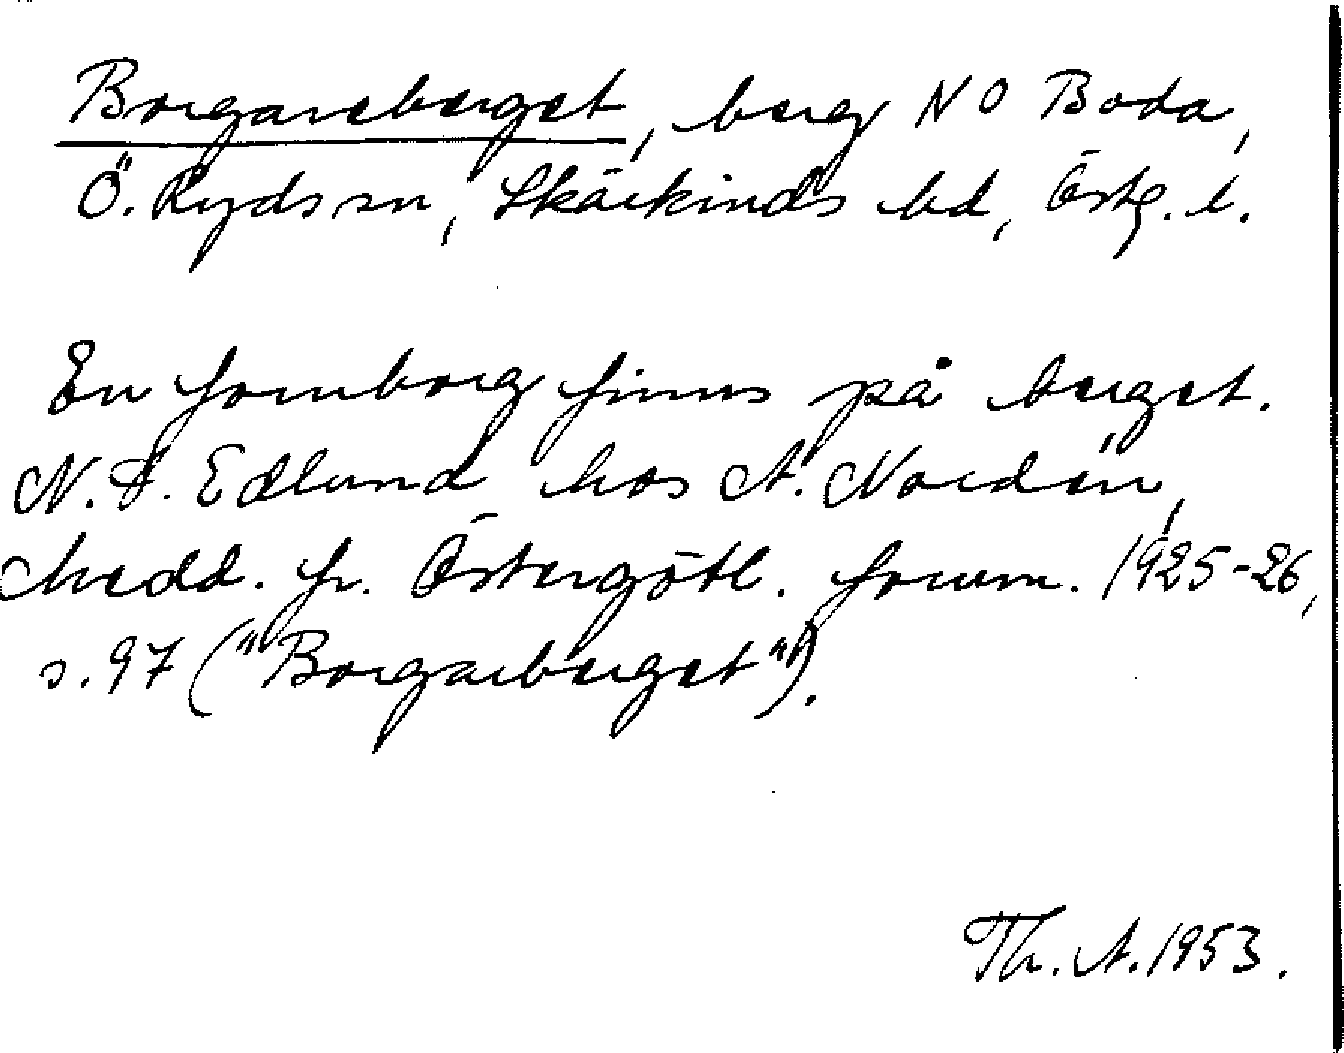 Borgareberget, berg NO Boda,
Ö. Ryds sn, Skärkinds hd, Östg. l.
En fornborg finns på berget.
N. I. Edlund hos A. Nordén,
Medd. fr. Östergötl. fornm. 1925-26,
s. 97 ("Borgarberget").
Th. A. 1953.